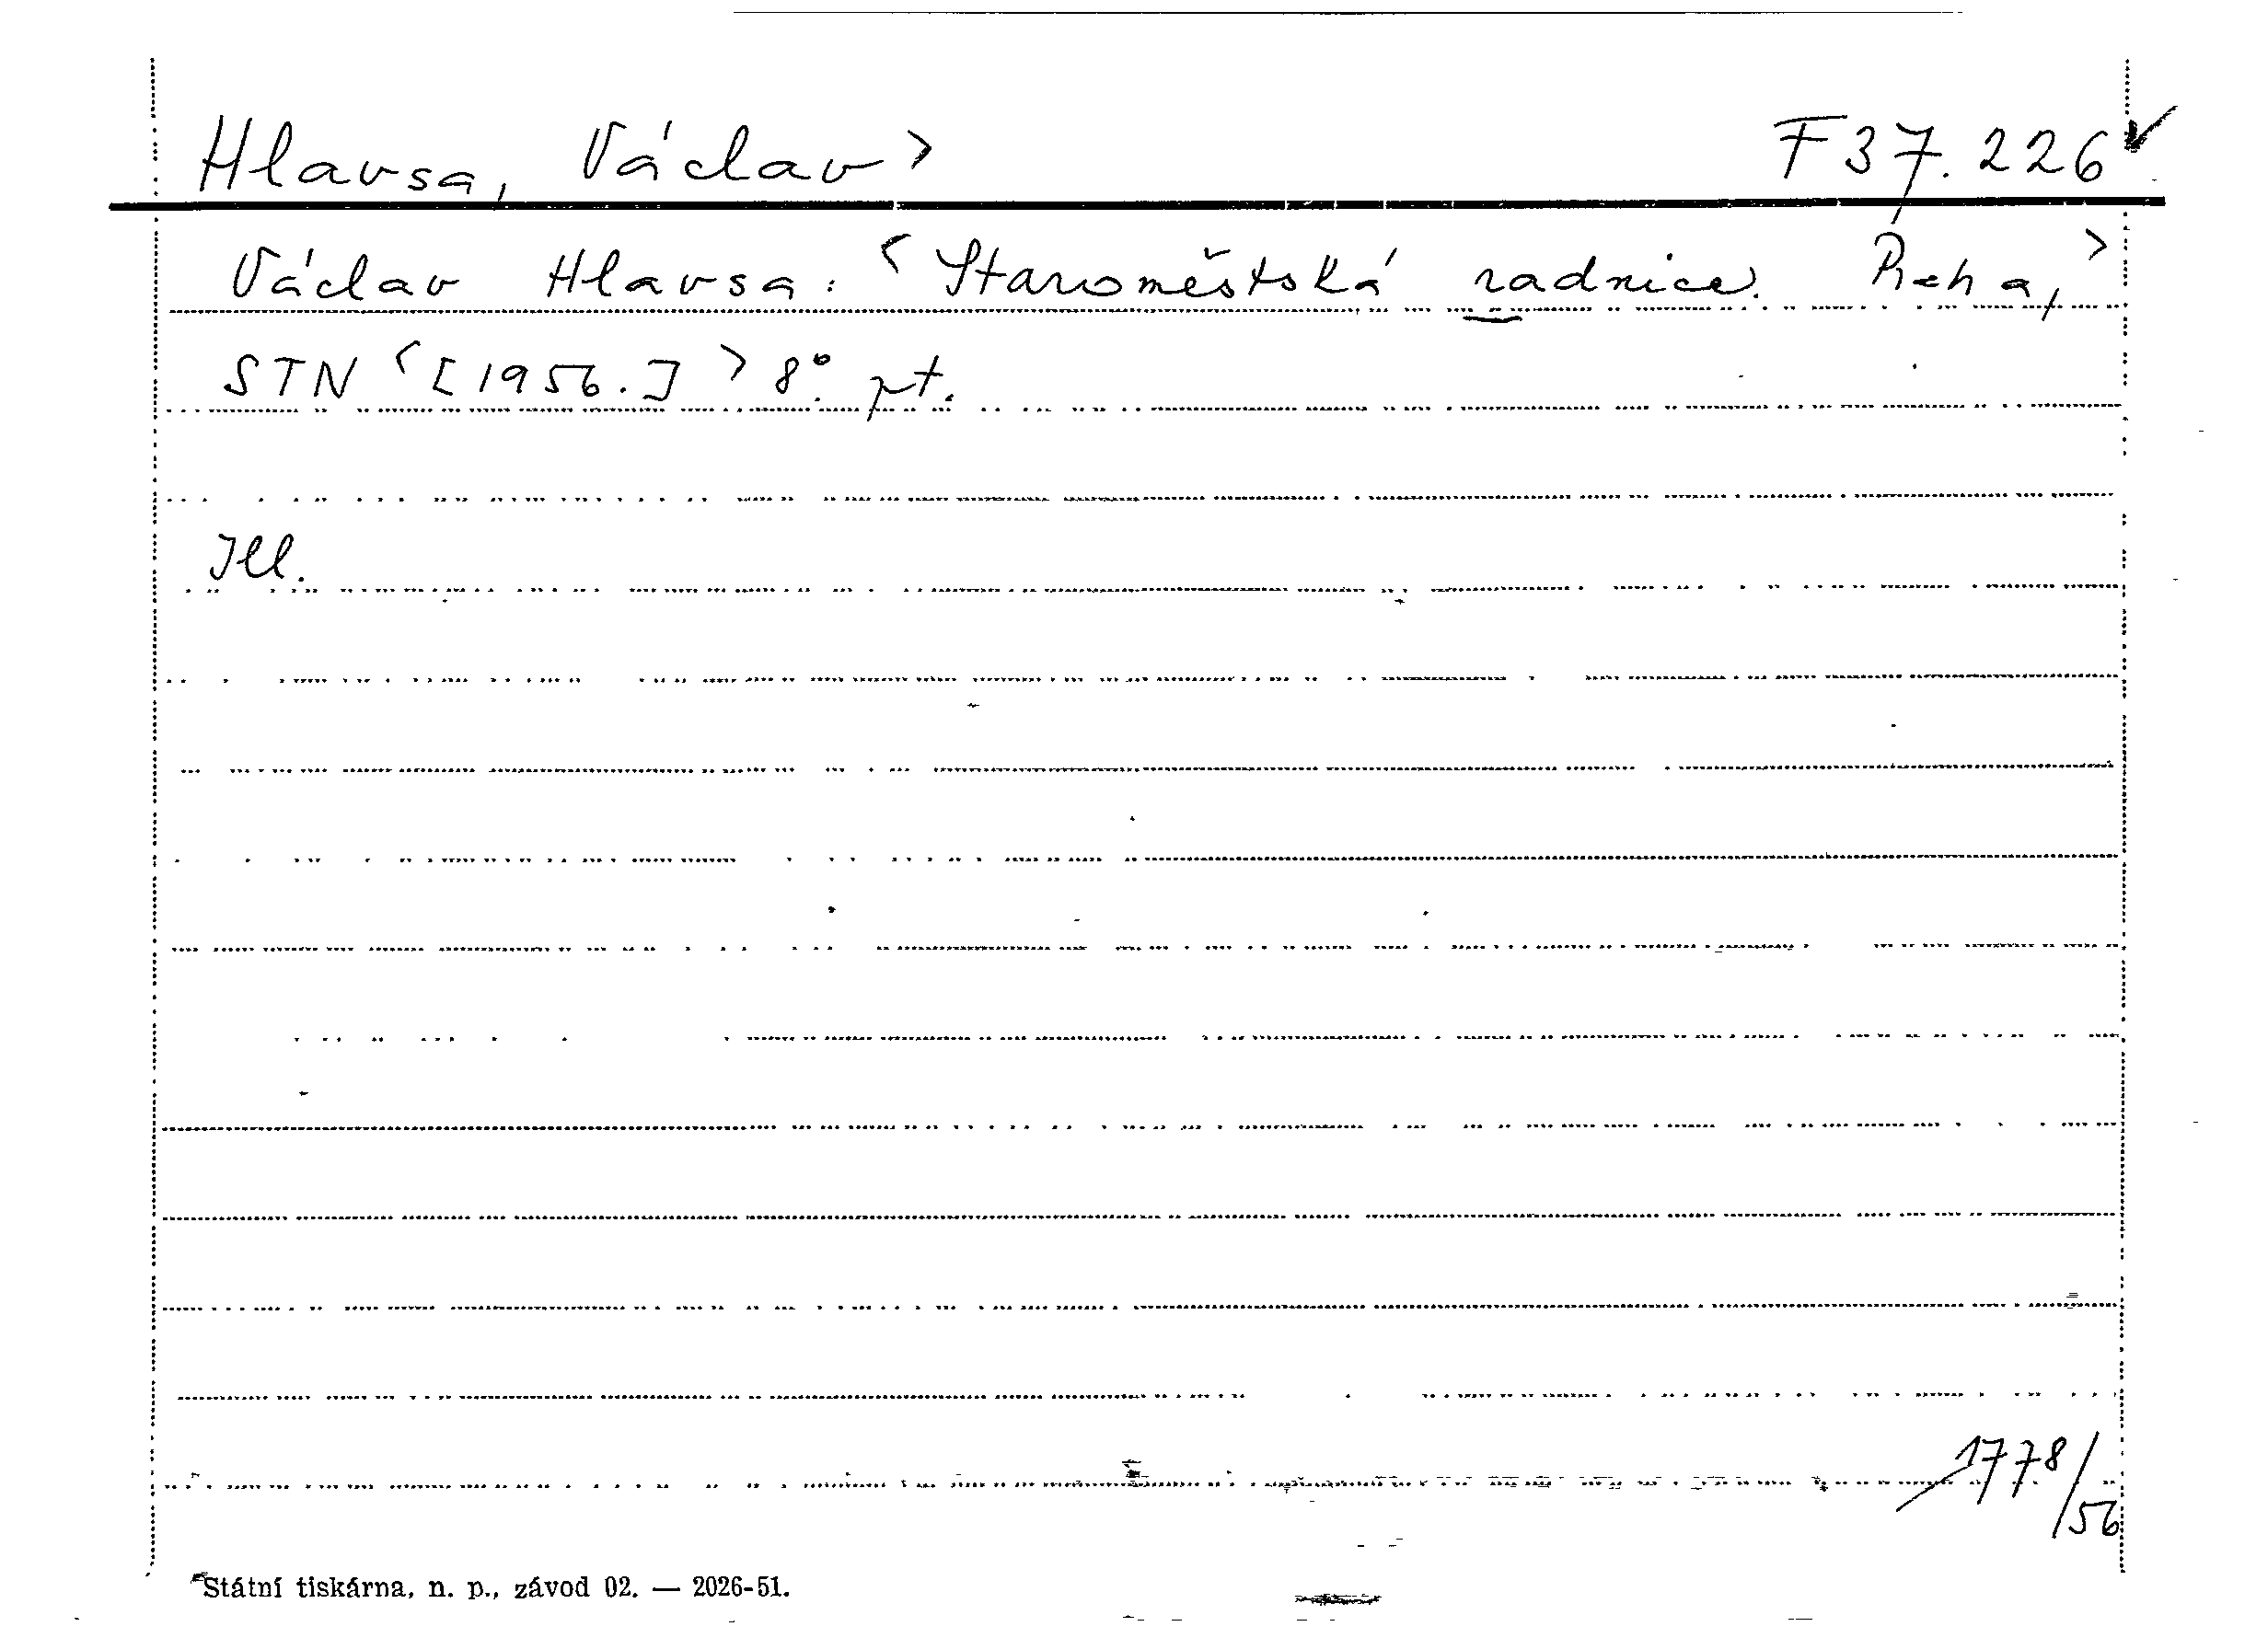 Hlavsa, Václav > F 37.226
Václav Hlavsa: < Staroměstská radnice. Praha, >
STN < [1956.] > 8°. pt.
Ill.
1778/56
Státní tiskárna, n. p., závod 02. — 2026-51.